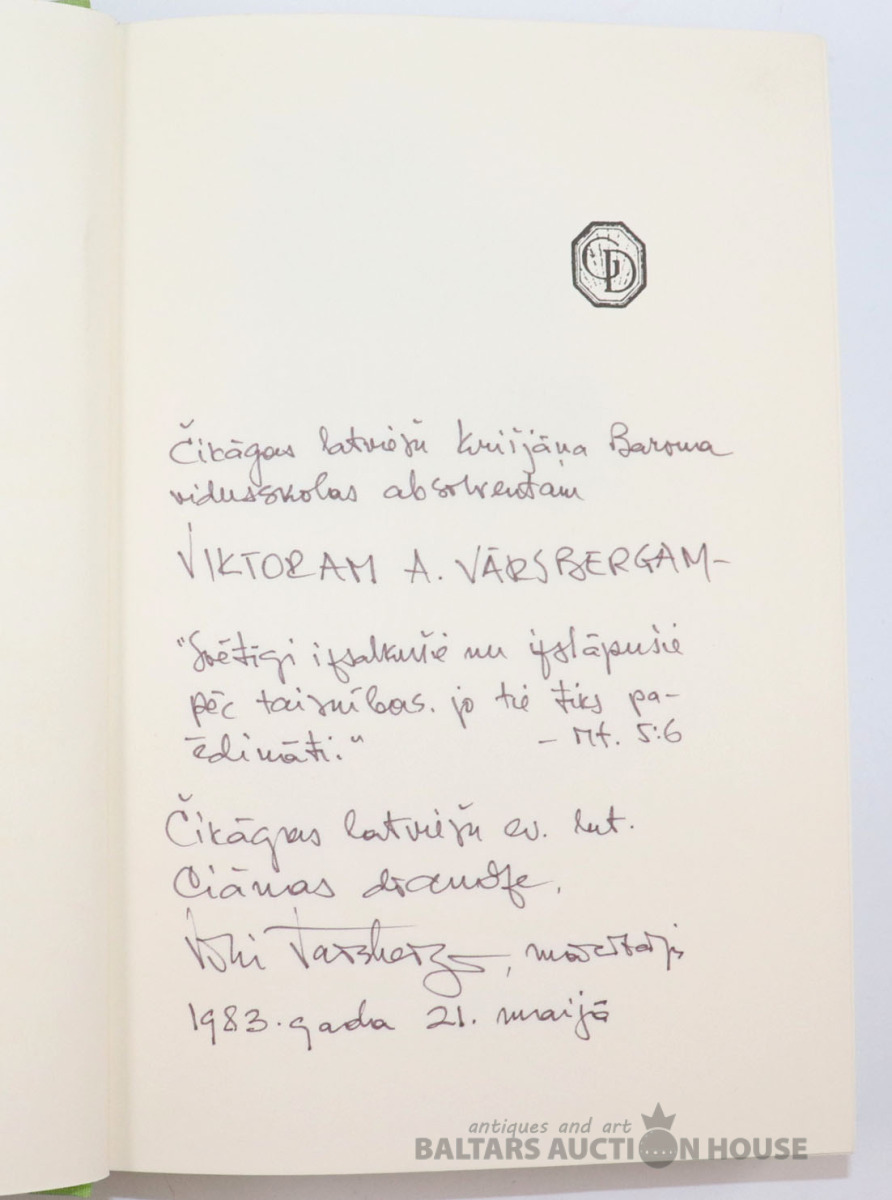 GD
Čikāgas latviešu Krišjāņa Barona
vidusskolas absolventam
VIKTORAM A. VĀRSBERGAM–
"Svētīgi izsalkušie un izslāpušie
pēc taisnības. jo tie tiks pa-
ēdināti." – Mt. 5:6
Čikāgas latviešu ev. lut.
Ciānas draudze,
, mācītājs
1983. gada 21. maijā
antiques and art
BALTARS AUCTION HOUSE